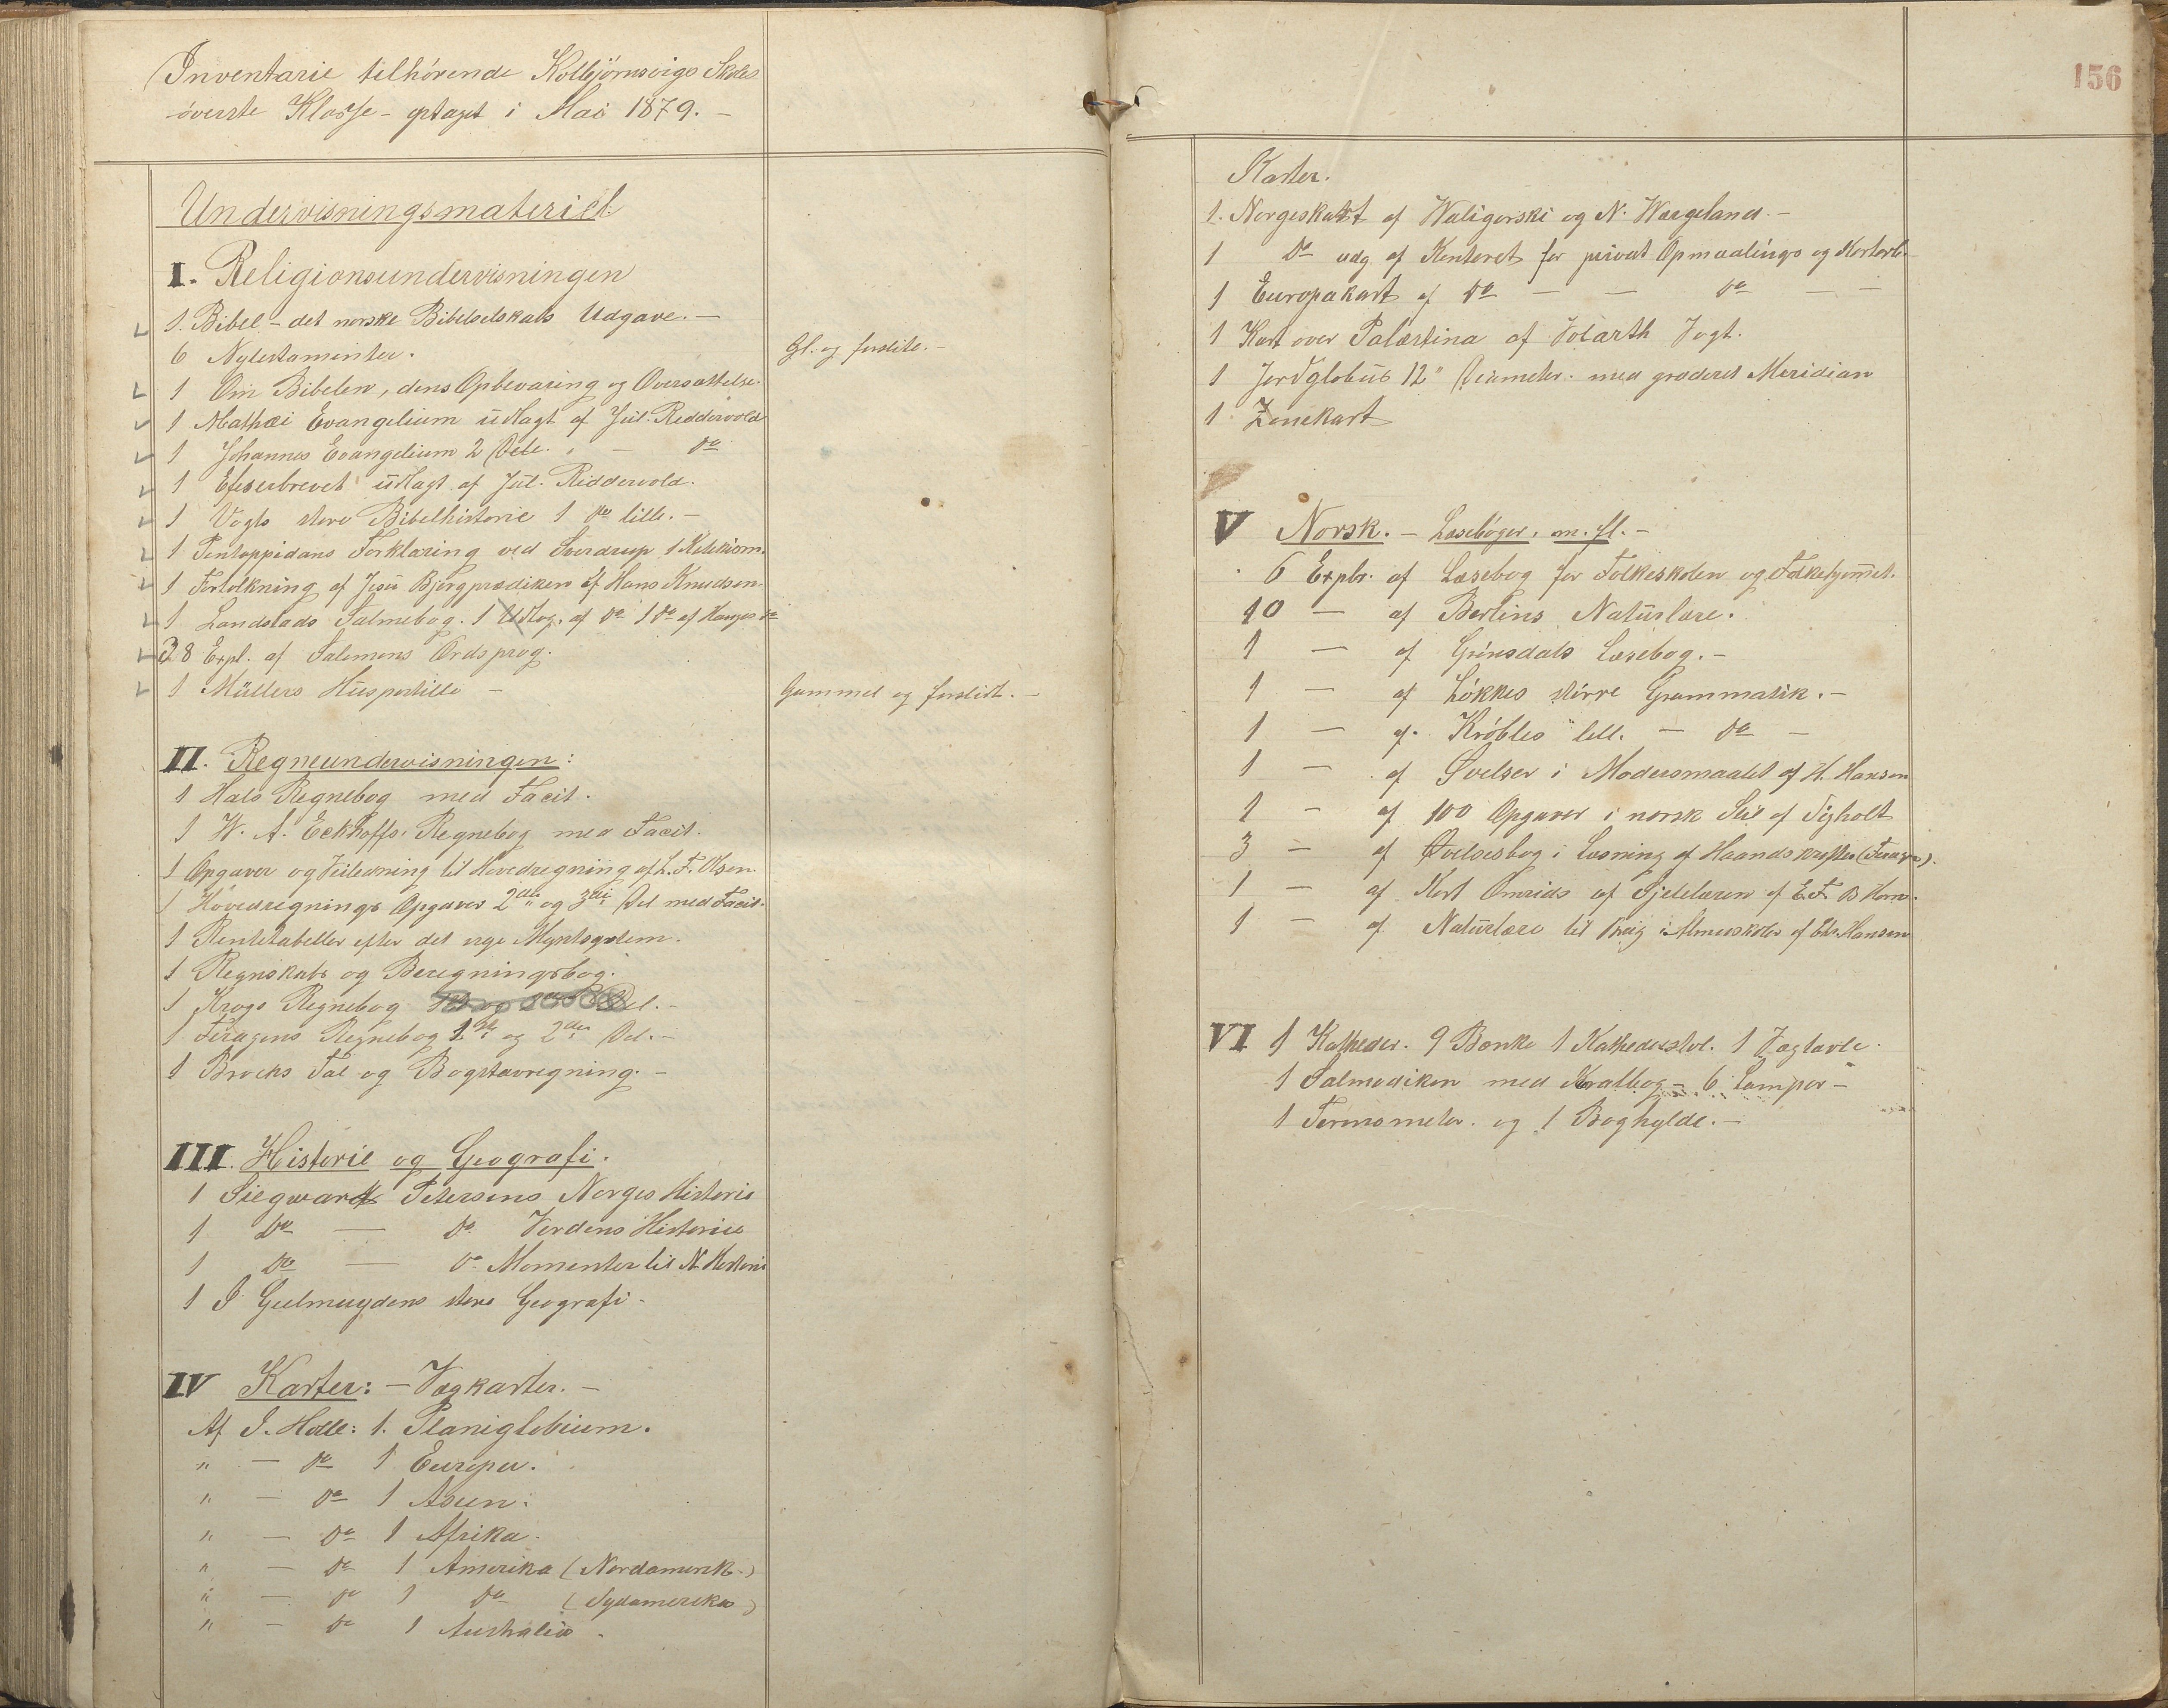 Inventarie tilhørende Kolbjørnsvigs Skoles
øverste Klasse - optaget i Mai 1879. -
Undervisningsmateriel
I. Religionsundervisningen
1. Bibel - det norske Bibelselskabs Udgave. -
6 Nytestamenter. Gl. og forslite. -
1 Om Bibelen, dens Opbevaring og Oversættelse.
1 Mathæi Evangelium udlagt af Jul. Riddervold
1 Johannes Evangelium 2 Dele. - do
1 Efeserbrevet udlagt af Jul. Riddervold.
1 Vogts store Bibelhistorie 1 do lille. -
1 Pontoppidans Forklaring ved Sverdrup 1 Katekism.
1 Fortolkning af Jesu Bjergprædiken af Hans Knudsen.
1 Landstads Salmebog. 1 Udtog. af do 1 do af Hauges do
38 Expl. af Salomons Ordsprog.
1 Müllers Huspostille - Gammel og forslidt. -
II. Regneundervisningen:
1 Hals Regnebog med Facit.
1 W. A. Eckhoffs Regnebog med Facit.
1 Opgaver og Veiledning til Hovedregning af L. F. Olsen.
1 Hovedregnings Opgaver 2den og 3die Del med Facit.
1 Rentetabeller efter det nye Myntsystem.
1 Regnskabs og Beregningsbog.
1 Krogs Regnebog Del. -
1 Feragens Regnebog 1ste og 2den Del. -
1 Brochs Tal og Bogstavregning. -
III. Historie og Geografi.
1 Siegwardt Petersens Norges Historie
1 Do - do Verdens Historie
1 Do - do Momenter til N. Historie
1 I Geelmuydens store Geografi -
IV Karter: - Vægkarter. -
Af I. Holle: 1. Planiglobium.
" - do 1 Europa.
" - do 1 Asien.
" - do 1 Afrika.
" - do 1 Amerika (Nordamerik.)
" - do 1 do (Sydamerika)
" - do 1 Australia -
156
Karter.
1. Norgeskart af Waligorski og N. Wergeland. -
1 do udg af Kontoret for privat Opmaalings og Kortarb.
1 Europakart af do - - do - -
1 Kart over Palæstina af Volrath Vogt.
1 Jordglobus 12" Diameter. med graderet Meridian
1 Zonekart
V Norsk. - Læsebøger. m. fl. -
6 Expbr. af Læsebog for Folkeskolen og Folkehjemmet.
10 - af Berlins Naturlære.
1 - af Grønsdals Læsebog. -
1 - af Løkkes større Grammatik. -
1 - af Krøbles lill. - do -
1 - af Øvelser i Modersmaalet af H. Hansen
1 - af 100 Opgaver i norsk Stil af Sigholt
3 - af Øvelsesbog i Læsning af Haandskrifter (Feragen).
1 - af Kort Omrids af Sjelelæren af E. F. B Horn.
1 - af Naturlære til Brug i Almueskoler af Chr. Hansen
VI 1 Katheder. 9 Bænke 1 Kathederstol. 1 Vægtavle.
1 Salmodikon med Koralbog - 6 Lamper -
1 Termometer. og 1 Boghylde. -